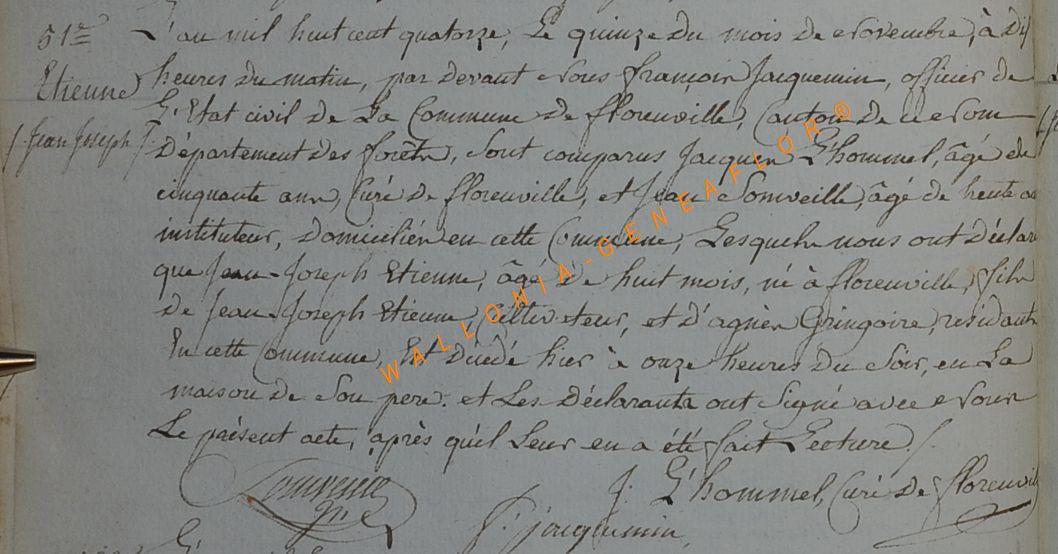 51e L'an mil huit cent quatorze, Le quinze du mois de Novembre, à dix
Etienne heures du matin, par devant Nous françois Jacquemin, officier de
L'Etat civil de La Commune de florenville, Canton de
/. Jean Joseph ./ Département des forêts, sont comparus Jacques L'hommel, âgé de
cinquante ans, Curé de florenville, et Jean Somveille, âgé de trente
instituteur, domiciliés en cette Commune, Lesquels nous ont déclaré
que Jean-Joseph Etienne, âgé de huit mois, né à florenville, fils
de Jean-Joseph Etienne, Cultivateur, et d'agnès Gringoire, résidants
En cette Commune, Est Décédé hier à onze heures du Soir, en La
maison de Son pere. et Les Déclarants ont Signé avec Nous
Le présent acte, après qu'il Leur en a été fait Lecture ./.
J. L'hommel, Curé de florenville
f. jacquemin,
WALLONIA-GENEAFLOR®